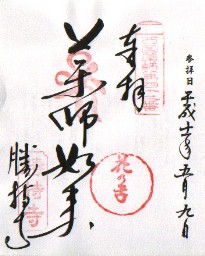 参拝日 平成 年五月九日
奉拝
花の寺
薬師如来
勝持寺